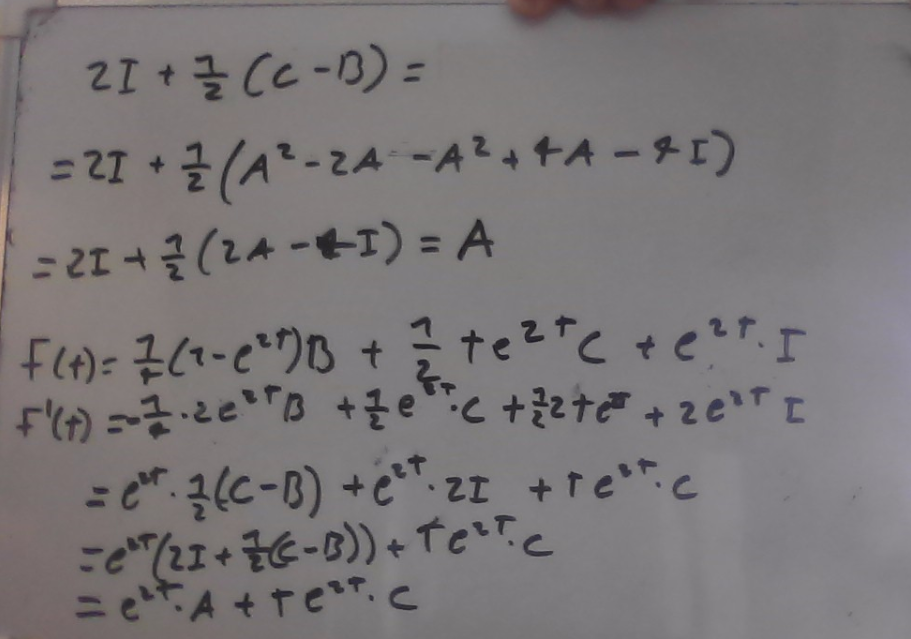 2I + 1/2 (C - B) =
= 2I + 1/2 (A² - 2A - A² + 4A - 4I)
= 2I + 1/2 (2A - 4I) = A
F(t) = 1/4 (1 - e^2t)B + 1/2 t e^2t C + e^2t · I
F'(t) = -1/4 · 2e^2t B + 1/2 e^2t · C + 1/2 2t e + 2e^2t I
= e^2t · 1/2 (C - B) + e^2t · 2I + t e^2t · C
= e^2t (2I + 1/2 (C - B)) + t e^2t · C
= e^2t · A + t e^2t · C